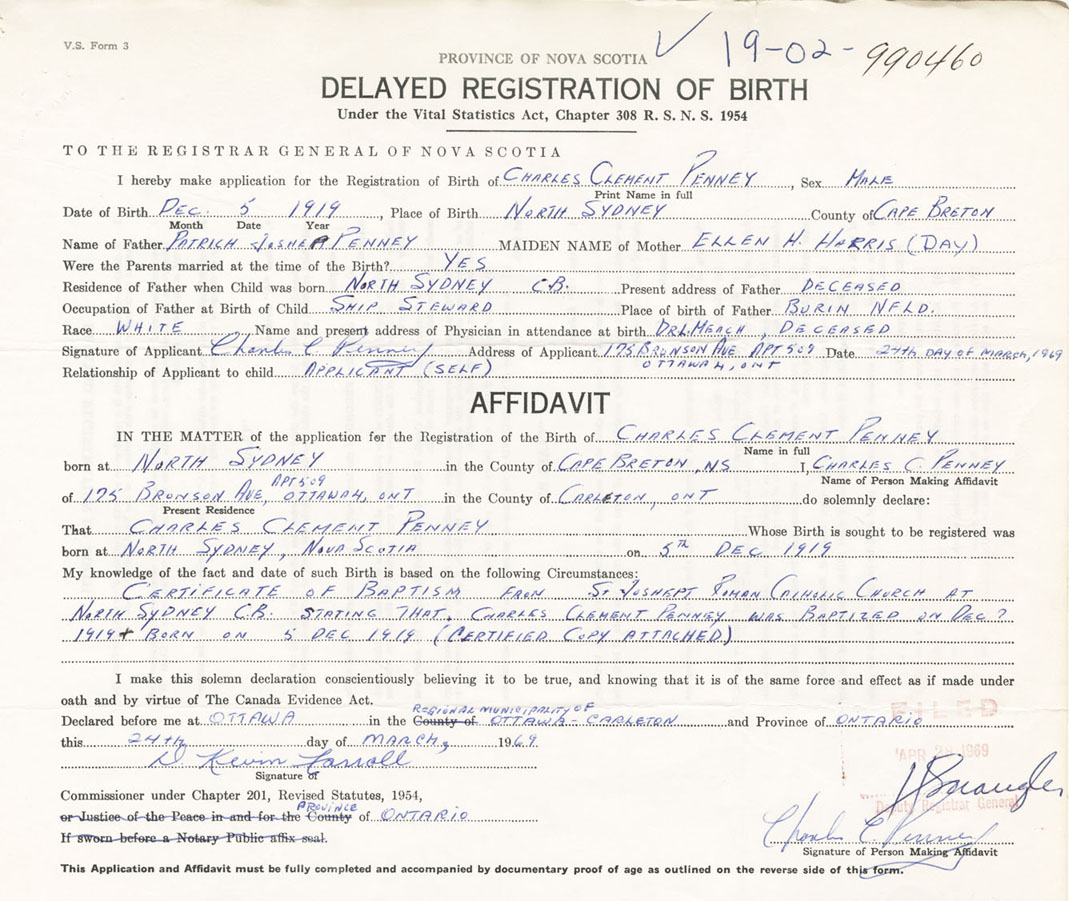 V.S. Form 3
19-02-990460
PROVINCE OF NOVA SCOTIA
DELAYED REGISTRATION OF BIRTH
Under the Vital Statistics Act, Chapter 308 R. S. N. S. 1954
TO THE REGISTRAR GENERAL OF NOVA SCOTIA
I hereby make application for the Registration of Birth of CHARLES CLEMENT PENNEY, Sex MALE
Print Name in full
Date of Birth DEC. 5 1919, Place of Birth NORTH SYDNEY County of CAPE BRETON
Month Date Year
Name of Father PATRICH JOSHEP PENNEY MAIDEN NAME of Mother ELLEN H. HARRIS (DAY)
Were the Parents married at the time of the Birth? YES
Residence of Father when Child was born NORTH SYDNEY C.B. Present address of Father DECEASED
Occupation of Father at Birth of Child SHIP STEWARD Place of birth of Father BURIN NFLD.
Race WHITE Name and present address of Physician in attendance at birth DR L. MEACH, DECEASED
Signature of Applicant Charles C Penney Address of Applicant 175 BRONSON AVE APT 509 Date 24th DAY OF MARCH, 1969
OTTAWAH, ONT
Relationship of Applicant to child APPLICANT (SELF)
AFFIDAVIT
IN THE MATTER of the application for the Registration of the Birth of CHARLES CLEMENT PENNEY
Name in full
born at NORTH SYDNEY in the County of CAPE BRETON, NS I, CHARLES C. PENNEY
Name of Person Making Affidavit
APT 509
of 175 BRONSON AVE, OTTAWAH, ONT in the County of CARLETON, ONT do solemnly declare:
Present Residence
That CHARLES CLEMENT PENNEY Whose Birth is sought to be registered was
born at NORTH SYDNEY, NOVA SCOTIA on 5TH DEC 1919
My knowledge of the fact and date of such Birth is based on the following Circumstances:
CERTIFICATE OF BAPTISM FROM ST JOSHEPT ROMAN CATHOLIC CHURCH AT
NORTH SYDNEY C.B. STATING THAT, CHARLES CLEMENT PENNEY WAS BAPTIZED ON DEC 7
1919 + BORN ON 5 DEC 1919 (CERTIFIED COPY ATTACHED)
I make this solemn declaration conscientiously believing it to be true, and knowing that it is of the same force and effect as if made under
oath and by virtue of The Canada Evidence Act.
REGIONAL MUNICIPALITY OF
Declared before me at OTTAWA in the County of OTTAWA-CARLETON and Province of ONTARIO
FILED
this 24th day of MARCH, 1969.
APR 28 1969
D. Kevin Carroll
Signature of
Commissioner under Chapter 201, Revised Statutes, 1954,
Deputy Registrar General
PROVINCE
or Justice of the Peace in and for the County of ONTARIO
If sworn before a Notary Public affix seal.
Charles C. Penney
Signature of Person Making Affidavit
This Application and Affidavit must be fully completed and accompanied by documentary proof of age as outlined on the reverse side of this form.